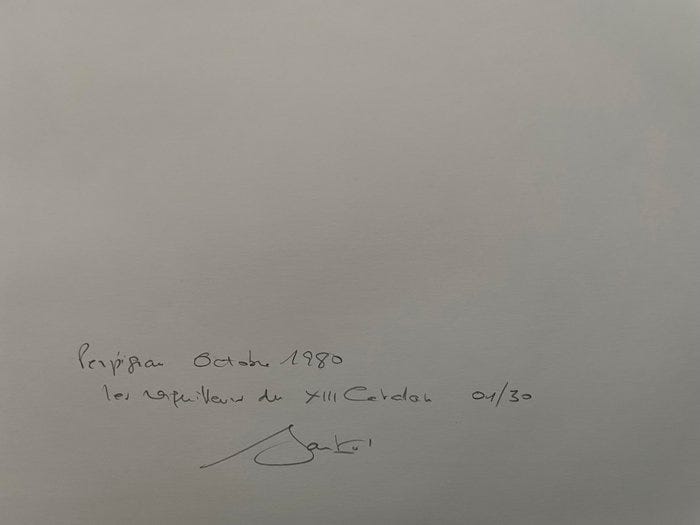 Perpignan Octobre 1980
les du XIII Catalan 01/30